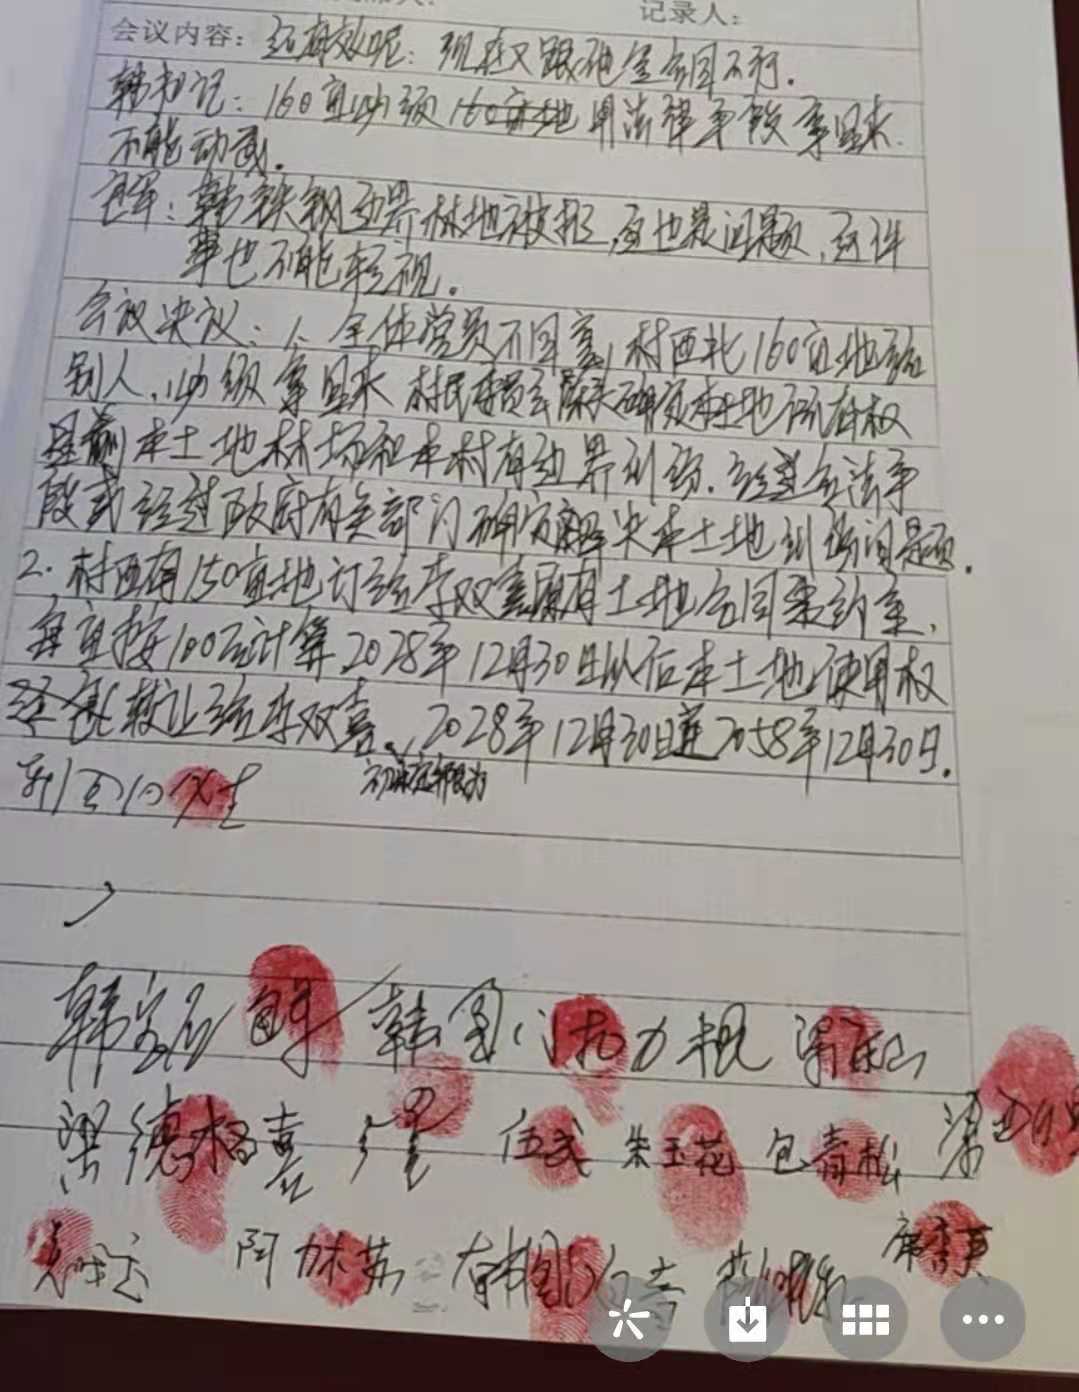 记录人：
会议内容：还有效呢：现在又跟他签合同不行。
韩书记：160亩必须160亩地用法律手段拿回来.
不能动武.
包军：韩铁钢边界林地被扣，这也是问题，这件
事也不能轻视.
会议决议：1、全体党员不同意，村西北160亩地给
别人，必须拿回来 村民委员会 确定本土地所有权
是 本土地林场和本村有边界纠纷. 经过合法手
段或经过政府有关部门确定解决本土地纠纷问题.
2. 村西有150亩地订给李双喜原有土地合同 约 ,
每亩按100元计算 2028年12月30日以后本土地使用权
延长转让给李双喜. 2028年12月30日 2058年12月30日.
韩 包军 韩图门 力根 山
梁德格喜 伍武 朱玉花 包青松
阿力木苏